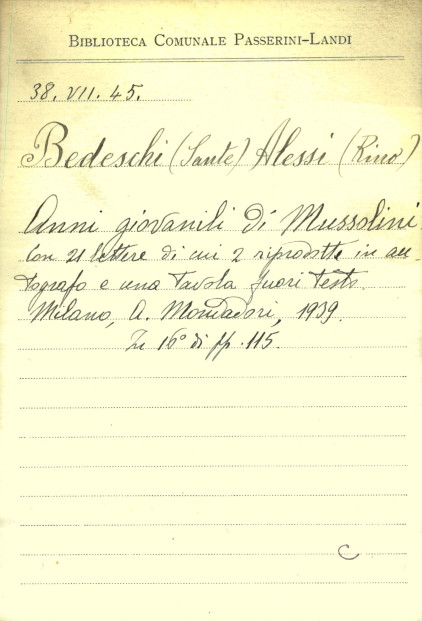 BIBLIOTECA COMUNALE PASSERINI-LANDI
38. VII. 45.
Bedeschi (Sante) Alessi (Rino)
Anni giovanili di Mussolini
Con 21 lettere di cui 2 riprodotte in au-
tografo e una tavola fuori testo.
Milano, A. Mondadori, 1939.
In 16° di pp. 115.
C